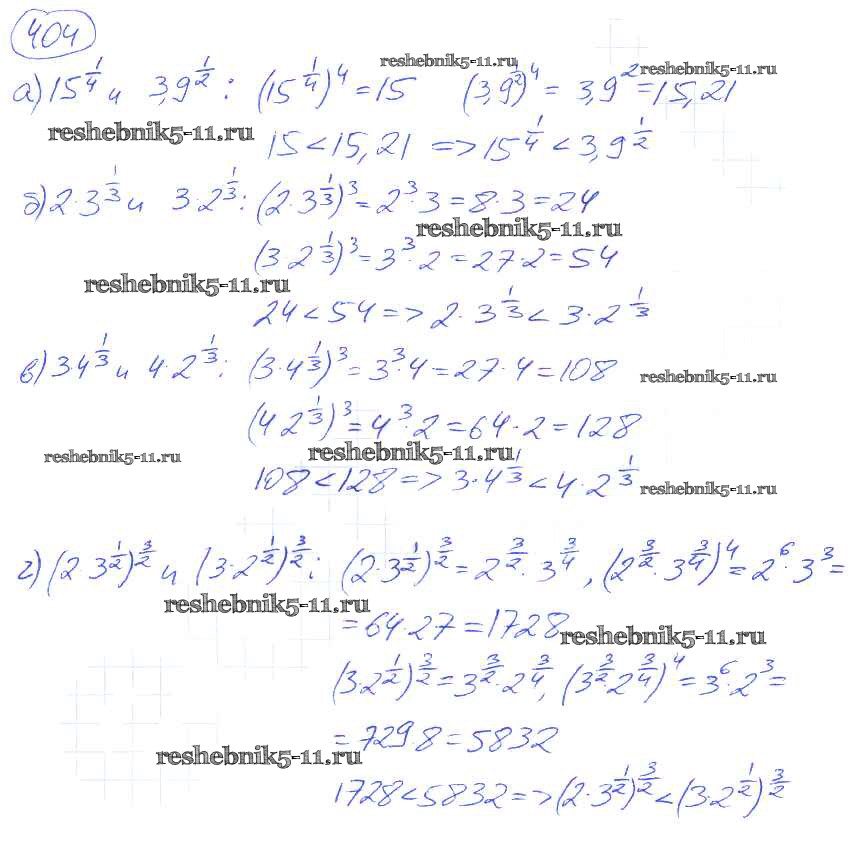 404
reshebnik5-11.ru
reshebnik5-11.ru
а) 15^{1/4} и 3,9^{1/2} : (15^{1/4})^4 = 15 (3,9^{1/2})^4 = 3,9^2 = 15,21
reshebnik5-11.ru
15 < 15,21 => 15^{1/4} < 3,9^{1/2}
б) 2·3^{1/3} и 3·2^{1/3} : (2·3^{1/3})^3 = 2^3·3 = 8·3 = 24
reshebnik5-11.ru
(3·2^{1/3})^3 = 3^3·2 = 27·2 = 54
reshebnik5-11.ru
24 < 54 => 2·3^{1/3} < 3·2^{1/3}
в) 3·4^{1/3} и 4·2^{1/3} : (3·4^{1/3})^3 = 3^3·4 = 27·4 = 108
reshebnik5-11.ru
(4 2^{1/3})^3 = 4^3·2 = 64·2 = 128
reshebnik5-11.ru
reshebnik5-11.ru
108 < 128 => 3·4^{1/3} < 4·2^{1/3}
reshebnik5-11.ru
г) (2·3^{1/2})^{3/2} и (3·2^{1/2})^{3/2} : (2·3^{1/2})^{3/2} = 2^{3/2}·3^{3/4}, (2^{3/2}·3^{3/4})^4 = 2^6·3^3 =
reshebnik5-11.ru
= 64·27 = 1728
reshebnik5-11.ru
(3·2^{1/2})^{3/2} = 3^{3/2}·2^{3/4}, (3^{3/2}·2^{3/4})^4 = 3^6·2^3 =
= 729·8 = 5832
reshebnik5-11.ru
1728 < 5832 => (2·3^{1/2})^{3/2} < (3·2^{1/2})^{3/2}